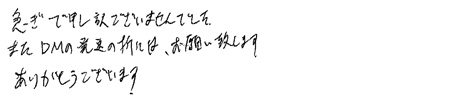 急ぎで申し訳ございませんでした
また DMの発送の折には、お願い致します
ありがとうございます